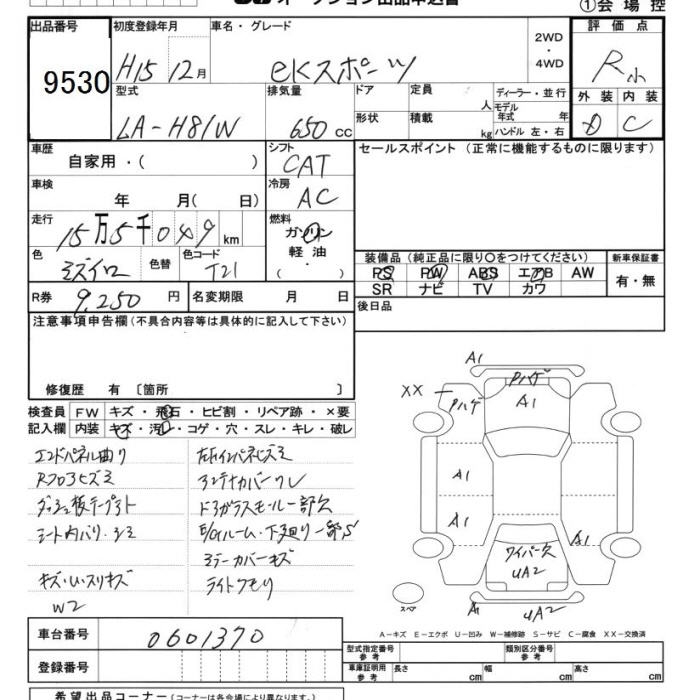 オークション出品申込書
①会場控
出品番号
初度登録年月
車名・グレード
2WD
・
4WD
評価点
9530
H15 12月
eKスポーツ
R小
型式
排気量
ドア
定員
人
ディーラー・並行
外装
内装
LA-H81W
650 cc
形状
積載
kg
モデル年式 年
ハンドル 左・右
D
C
車歴
自家用・( )
シフト
CAT
セールスポイント (正常に機能するものに限ります)
車検
年 月( 日)
冷房
AC
走行
15万5千049 km
燃料
ガソリン
・
軽油
( )
色
ミズイロ
色替
色コード
T21
装備品 (純正品に限り○をつけてください)
新車保証書
PS
PW
ABS
エアB
AW
有・無
SR
ナビ
TV
カワ
R券
9,250 円
名変期限 月 日
後日品
注意事項申告欄(不具合内容等は具体的に記入して下さい)
修復歴 有 〔箇所 〕
検査員
記入欄
FW
キズ・飛石・ヒビ割・リペア跡・×要
内装
キズ・汚れ・コゲ・穴・スレ・キレ・破レ
エンドパネル曲り
左右インパネヒズミ
Rフロアヒズミ
アンテナカバークレ
シート内バリ・シミ
ドアガラスモール一部欠
E/Gルーム・下廻り一部S
ミラーカバーキズ
キズ・U・スリキズ
ライトクモリ
W2
A1
Pハゲ
XX
Pハゲ
A1
A1
A1
A1
ワイパー欠
UA2
スペア
A1
UA2
A-キズ E-エクボ U-凹み W-補修跡 S-サビ C-腐食 XX-交換済
車台番号
0601370
型式指定番号
参考
類別区分番号
参考
登録番号
車庫証明用
参考
長さ
cm
幅
cm
高さ
cm
希望出品コーナー(コーナーは各会場により異なります。)